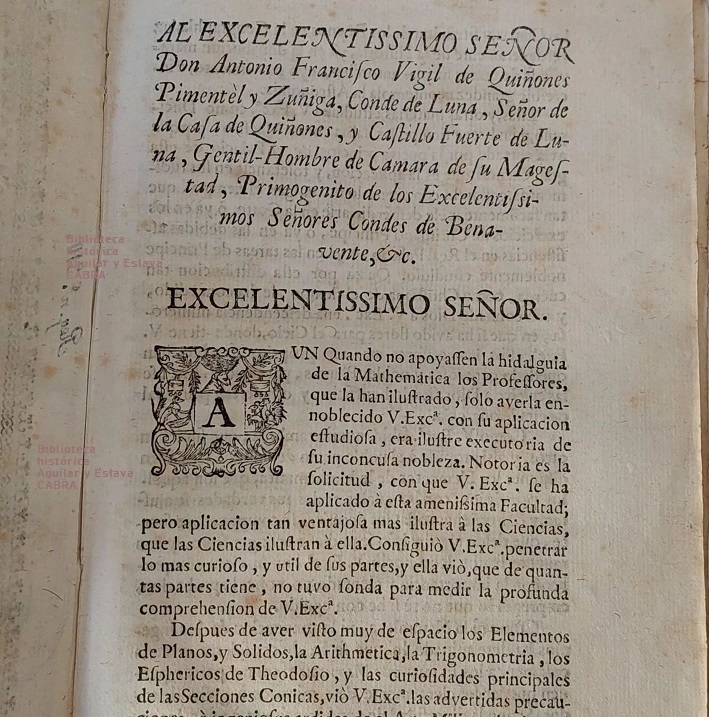 AL EXCELENTISSIMO SEÑOR
Don Antonio Franciſco Vigil de Quiñones
Pimentèl y Zuñiga, Conde de Luna, Señor de
la Caſa de Quiñones, y Caſtillo Fuerte de Lu-
na, Gentil-Hombre de Camara de ſu Mageſ-
tad, Primogenito de los Excelentiſsi-
mos Señores Condes de Bena-
vente, &c.
EXCELENTISSIMO SEÑOR.
AUN Quando no apoyaſſen la hidalguia
de la Mathematica los Profeſſores,
que la han iluſtrado, ſolo averla en-
noblecido V.Excª. con ſu aplicacion
eſtudioſa, era iluſtre executoria de
ſu inconcuſa nobleza. Notoria es la
ſolicitud, con que V. Excª. ſe ha
aplicado à eſta ameniſsima Facultad;
pero aplicacion tan ventajoſa mas iluſtra à las Ciencias,
que las Ciencias iluſtran à ella. Conſiguiò V.Excª. penetrar
lo mas curioſo, y util de ſus partes, y ella viò, que de quan-
tas partes tiene, no tuvo ſonda para medir la profunda
comprehenſion de V.Excª.
Deſpues de aver viſto muy de eſpacio los Elementos
de Planos, y Solidos, la Arithmetica, la Trigonometria, los
Eſphericos de Theodoſio, y las curioſidades principales
de las Secciones Conicas, viò V.Excª. las advertidas precau-
Biblioteca
histórica
Aguilar y Eslava
CABRA
Biblioteca
histórica
Aguilar y Eslava
CABRA